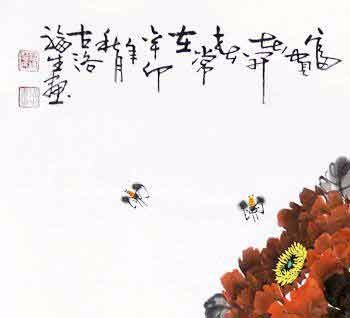 富
贵
花开
春常
在
辛卯
年
秋月
古洛
生画